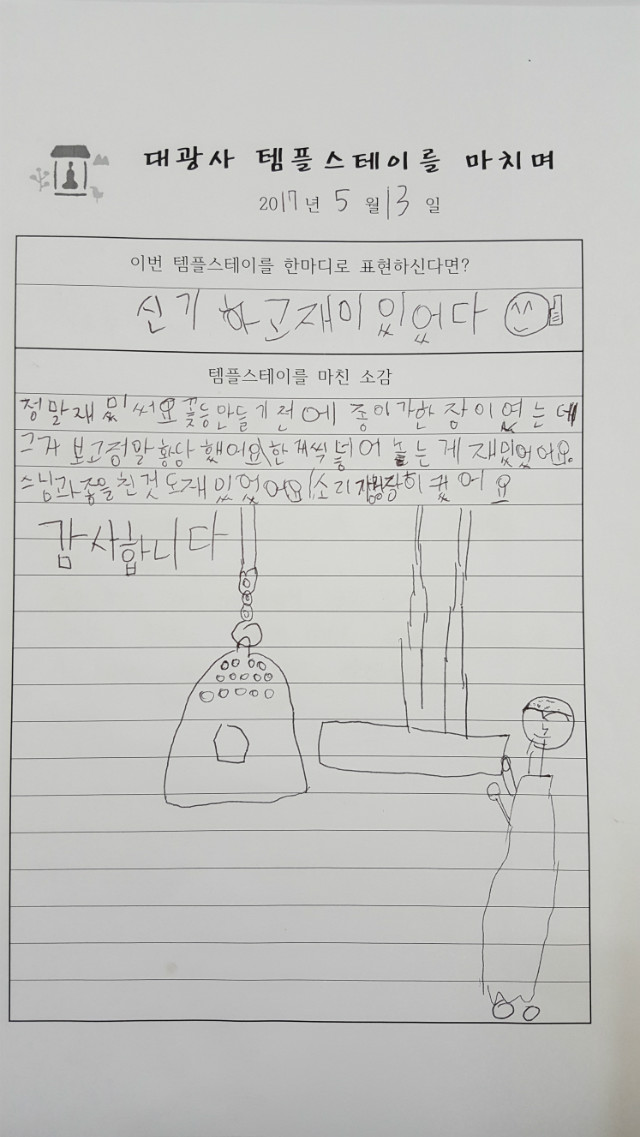 대광사 템플스테이를 마치며
2017년 5월 13일
이번 템플스테이를 한마디로 표현하신다면?
신기하고재미있었다
템플스테이를 마친 소감
정말재밌써요 꽃등만들기전에 종이가한장이였는데
그거 보고정말황당했어요 한개씩 넣어 는게 재밌었어요.
스님과종을친것도재있었어요 소리가 히 컸어요
감사합니다